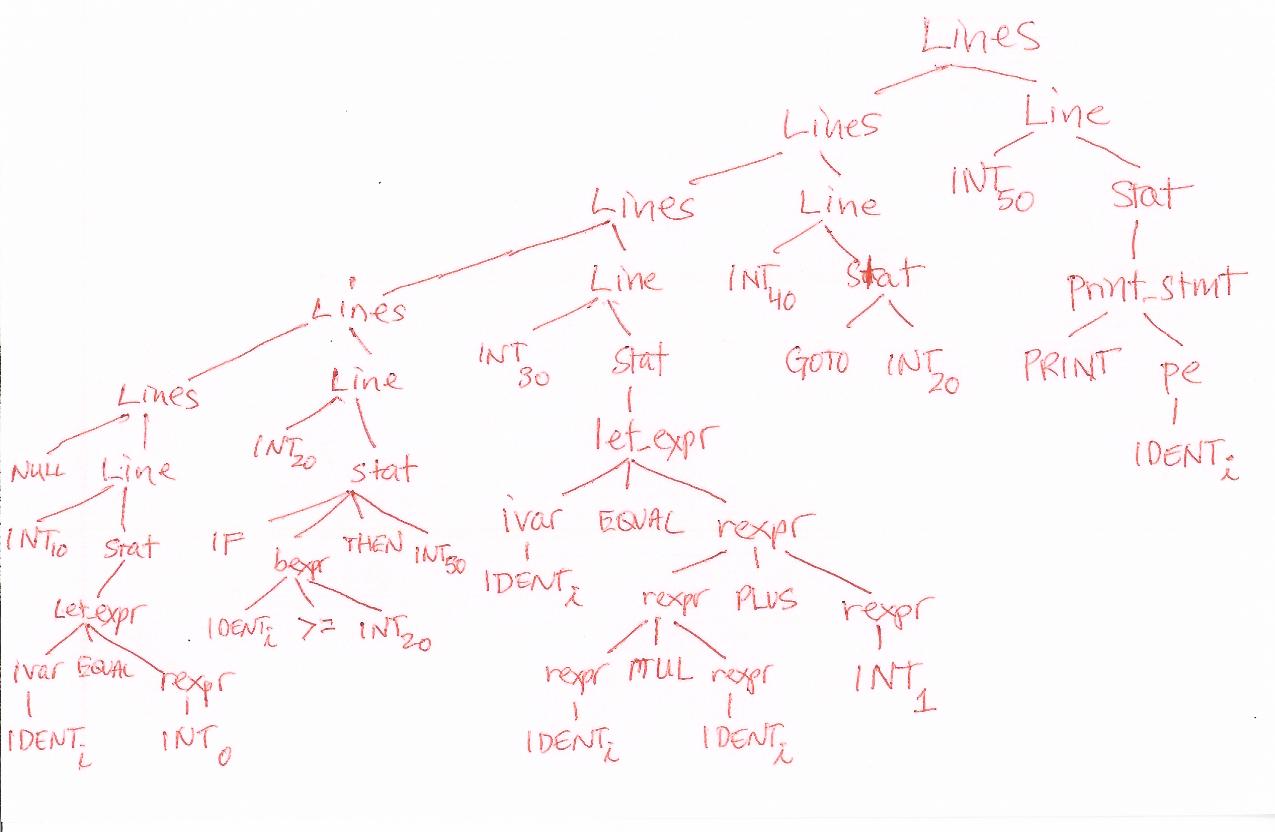 Lines
Lines Line
Lines Line INT50 Stat
Lines Line INT40 Stat Print_stmt
Lines Line INT30 Stat GOTO INT20 PRINT pe
NULL Line INT20 stat let_expr IDENTi
INT10 Stat IF bexpr THEN INT50 ivar EQUAL rexpr
Let_expr IDENTi >= INT20 IDENTi rexpr PLUS rexpr
ivar EQUAL rexpr rexpr MUL rexpr INT1
IDENTi INT0 IDENTi IDENTi